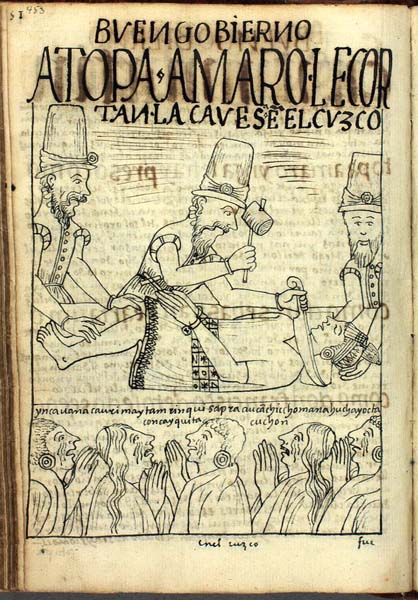 453
BVEN GOBIERNO
A TOPA AMARO·LE COR
TAN·LA CAVESA Ē EL CVZCO
ynca uana cauri maytam rinqui sapra aucāchiccho mana huchayocta
concayquita cuchon
en el cuzco
fue